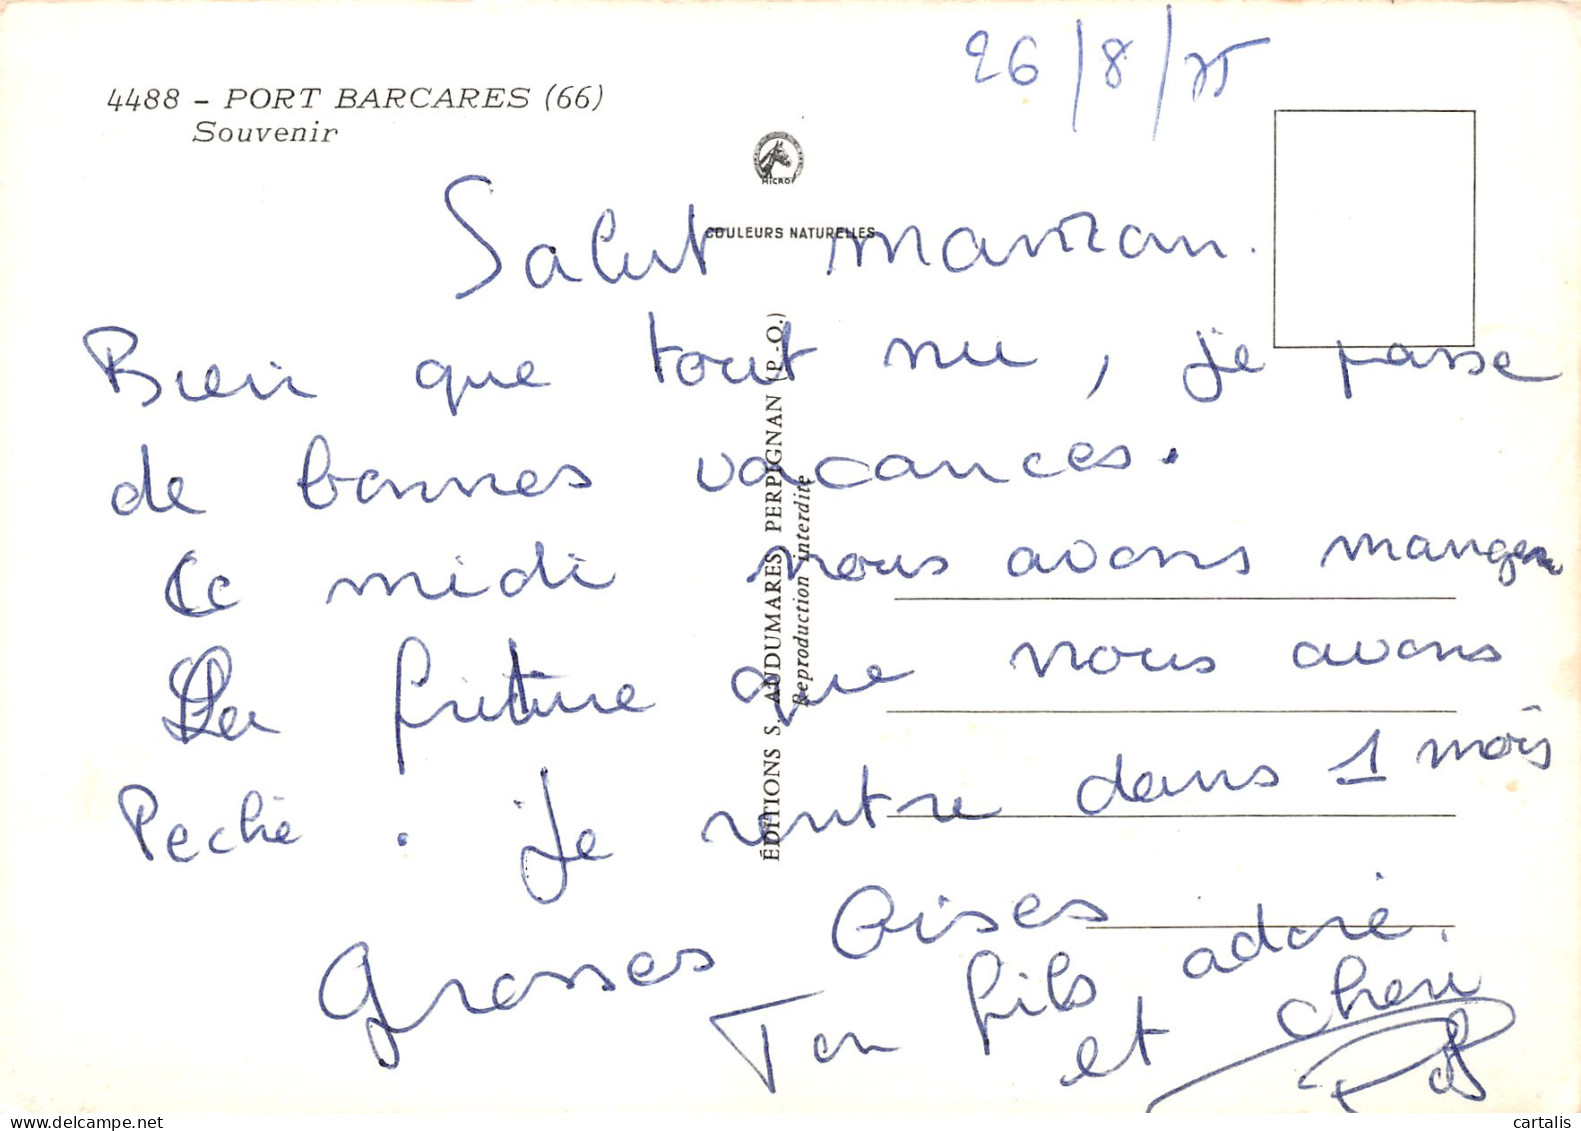 26/8/75
4488 - PORT BARCARES (66)
Souvenir
MICRO
COULEURS NATURELLES
Salut maman.
Bien que tout nu, je passe
de bonnes vacances.
Ce midi nous avons manger
La friture que nous avons
Peché. Je rentre dans 1 mois
Grosses Bises
Ton fils adoré.
et cheri
ÉDITIONS S. AUDUMARES, PERPIGNAN (P.-O.)
Reproduction interdite
cartalis